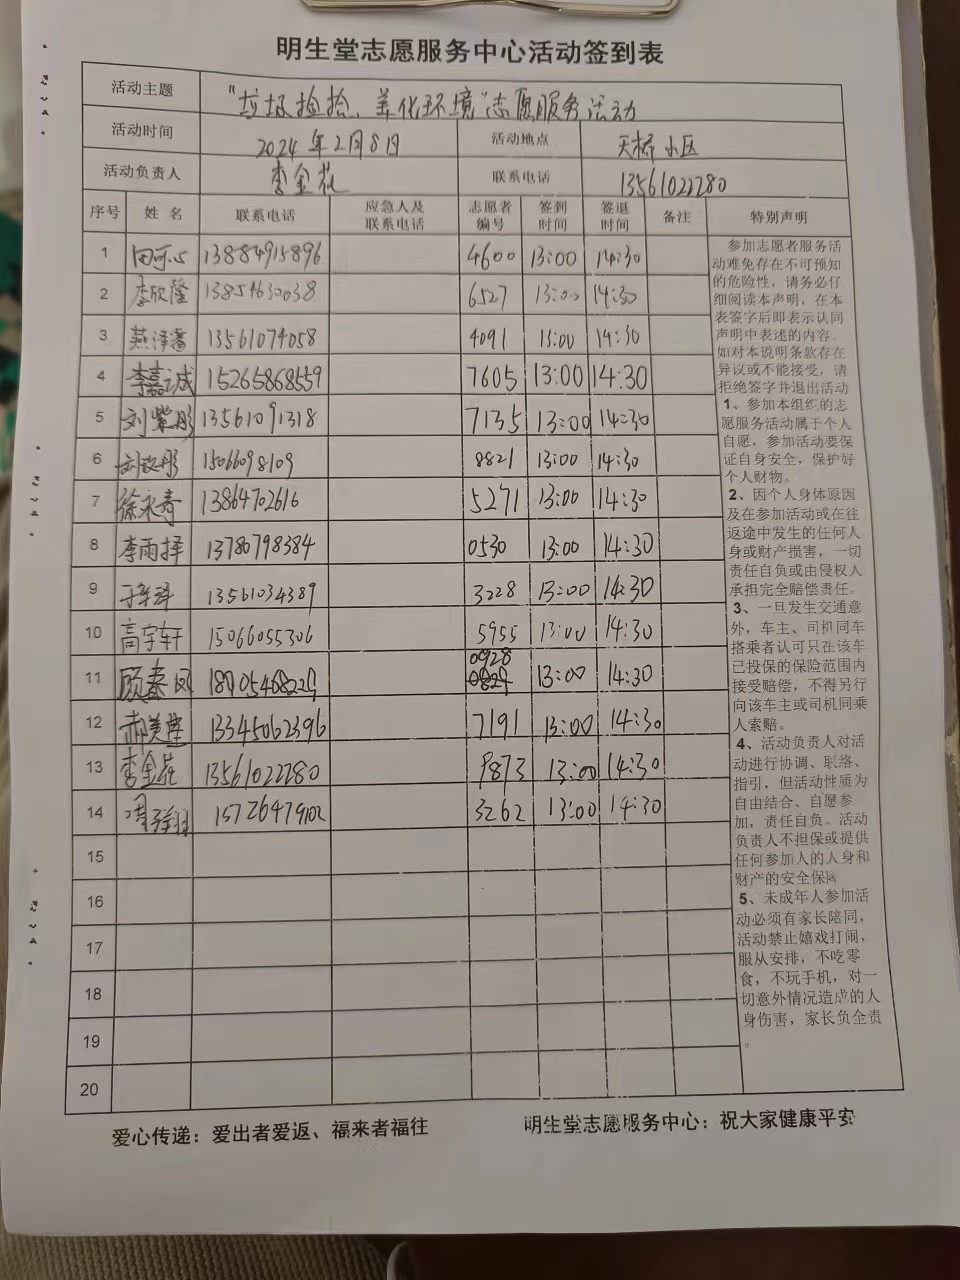 明生堂志愿服务中心活动签到表
活动主题 "垃圾捡拾、美化环境"志愿服务活动
活动时间 2024年2月8日 活动地点 天桥小区
活动负责人 李金花 联系电话 13561022780
序号 姓名 联系电话 应急人及联系电话 志愿者编号 签到时间 签退时间 备注 特别声明
1 田可心 13884915896 4600 13:00 14:30
2 李欣隆 13854630038 6527 13:00 14:30
3 燕泽 13561074058 4091 13:00 14:30
4 李嘉诚 15265868559 7605 13:00 14:30
5 刘紫彤 13561091318 7135 13:00 14:30
6 刘 彤 15066098109 8821 13:00 14:30
7 徐永奇 13864702616 5271 13:00 14:30
8 李雨择 13780798384 0530 13:00 14:30
9 于 泽 13561034389 3228 13:00 14:30
10 高宇轩 15066055306 5955 13:00 14:30
11 顾春凤 0928 13:00 14:30
12 郝美莲 13345062396 7191 13:00 14:30
13 李金花 13561022780 9873 13:00 14:30
14 15726479102 3262 13:00 14:30
15
16
17
18
19
20
参加志愿者服务活
动难免存在不可预知
的危险性，请务必仔
细阅读本声明，在本
表签字后即表示认同
声明中表述的内容。
如对本说明条款存在
异议或不能接受，请
拒绝签字并退出活动
1、参加本组织的志
愿服务活动属于个人
自愿，参加活动要保
证自身安全，保护好
个人财物。
2、因个人身体原因
及在参加活动或在往
返途中发生的任何人
身或财产损害，一切
责任自负或由侵权人
承担完全赔偿责任。
3、一旦发生交通意
外，车主、司机同车
搭乘者认可只在该车
已投保的保险范围内
接受赔偿，不得另行
向该车主或司机同乘
人索赔。
4、活动负责人对活
动进行协调、联络、
指引，但活动性质为
自由结合、自愿参
加，责任自负。活动
负责人不担保或提供
任何参加人的人身和
财产的安全保障
5、未成年人参加活
动必须有家长陪同，
活动禁止嬉戏打闹，
服从安排，不吃零
食，不玩手机，对一
切意外情况造成的人
身伤害，家长负全责
。
爱心传递：爱出者爱返、福来者福往 明生堂志愿服务中心：祝大家健康平安